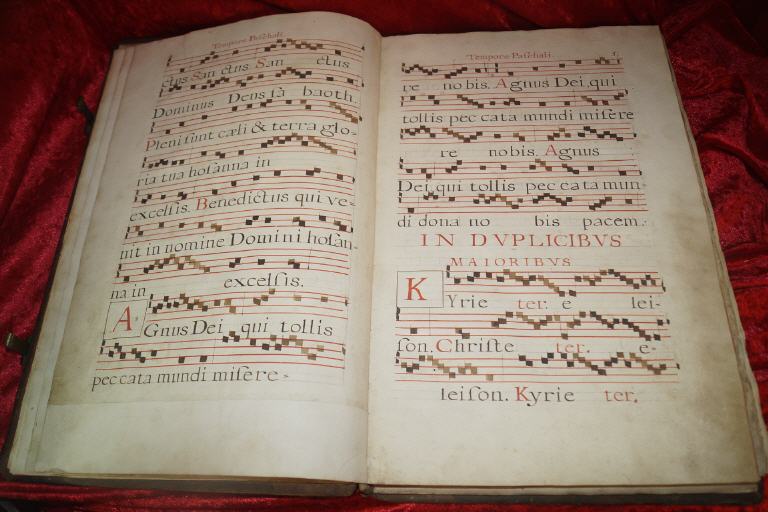 Tempore Paſchali
ctus San ctus San ctus
Dominus Deus ſà baoth.
Pleni ſunt cæli & terra glo-
ria tua hoſanna in
excelſis. Benedictus qui ve-
nit in nomine Domini hoſan-
na in excelſis.
AGnus Dei qui tollis
pec cata mundi miſere-
Tempore Paſchali.
re nobis. Agnus Dei qui
tollis pec cata mundi miſere
re nobis. Agnus
Dei qui tollis pec cata mun-
di dona no bis pacem.
IN DVPLICIBVS
MAIORIBVS
KYrie ter. e lei-
ſon. Chriſte ter. e-
leiſon. Kyrie ter.